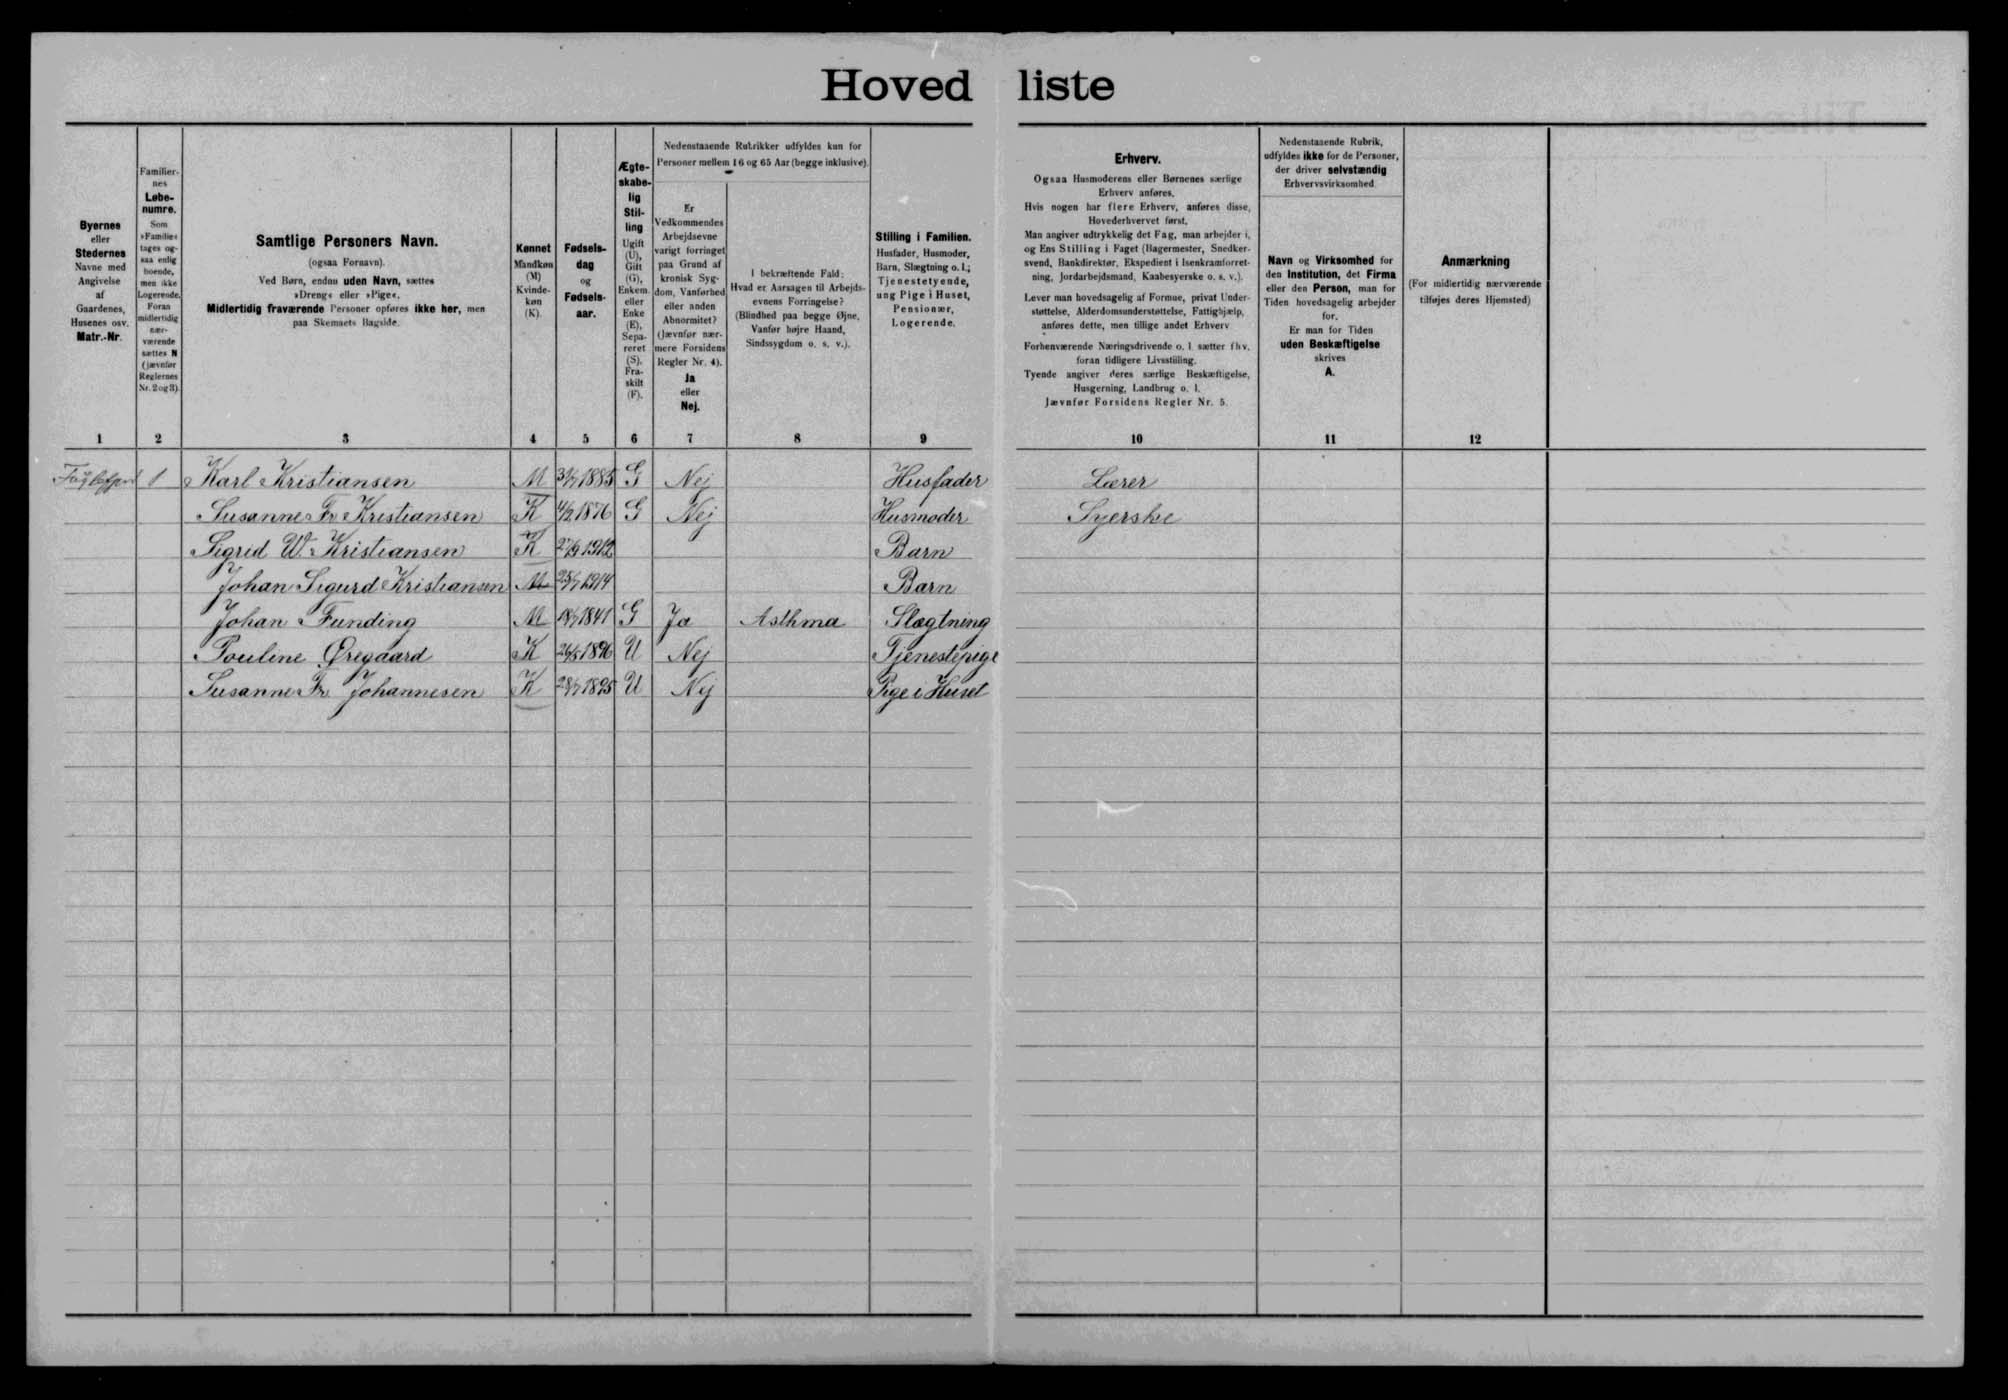 Hovedliste
Byernes
eller
Stedernes
Navne med
Angivelse
af
Gaardenes,
Husenes osv.
Matr.-Nr.
Familier-
nes
Løbe-
numre.
Som
»Familie«
tages og-
saa enlig
boende,
men ikke
Logerende.
Foran
midlertidig
nær-
værende
sættes N
(jævnfør
Reglernes
Nr. 2 og 3).
Samtlige Personers Navn.
(ogsaa Fornavn).
Ved Børn, endnu uden Navn, sættes
»Dreng« eller »Pige«.
Midlertidig fraværende Personer opføres ikke her, men
paa Skemaets Bagside.
Kønnet
Mandkøn
(M)
Kvinde-
køn
(K).
Fødsels-
dag
og
Fødsels-
aar.
Ægte-
skabe-
lig
Stil-
ling
Ugift
(U),
Gift
(G),
Enkem.
eller
Enke
(E),
Sepa-
reret
(S),
Fra-
skilt
(F).
Nedenstaaende Rubrikker udfyldes kun for
Personer mellem 16 og 65 Aar (begge inklusive).
Er
Vedkommendes
Arbejdsevne
varigt forringet
paa Grund af
kronisk Syg-
dom, Vanførhed
eller anden
Abnormitet?
(Jævnfør nær-
mere Forsidens
Regler Nr. 4).
Ja
eller
Nej.
I bekræftende Fald:
Hvad er Aarsagen til Arbejds-
evnens Forringelse?
(Blindhed paa begge Øjne,
Vanfør højre Haand,
Sindssygdom o. s. v.).
Stilling i Familien.
Husfader, Husmoder,
Barn, Slægtning o. l.;
Tjenestetyende,
ung Pige i Huset,
Pensionær,
Logerende.
Erhverv.
Ogsaa Husmoderens eller Børnenes særlige
Erhverv anføres.
Hvis nogen har flere Erhverv, anføres disse,
Hovederhvervet først.
Man angiver udtrykkelig det Fag, man arbejder i,
og Ens Stilling i Faget (Bagermester, Snedker-
svend, Bankdirektør, Ekspedient i Isenkramforret-
ning, Jordarbejdsmand, Kaabesyerske o. s. v.).
Lever man hovedsagelig af Formue, privat Under-
støttelse, Alderdomsunderstøttelse, Fattighjælp,
anføres dette, men tillige andet Erhverv
Forhenværende Næringsdrivende o. l. sætter fhv.
foran tidligere Livsstilling.
Tyende angiver deres særlige Beskæftigelse,
Husgerning, Landbrug o. l.
Jævnfør Forsidens Regler Nr. 5.
Nedenstaaende Rubrik,
udfyldes ikke for de Personer,
der driver selvstændig
Erhvervsvirksomhed.
Navn og Virksomhed for
den Institution, det Firma
eller den Person, man for
Tiden hovedsagelig arbejder
for.
Er man for Tiden
uden Beskæftigelse
skrives
A.
Anmærkning
(For midlertidig nærværende
tilføjes deres Hjemsted)
1 2 3 4 5 6 7 8 9 10 11 12
1 Karl Kristiansen M 1885 G Nej Husfader Lærer
Susanne Fr. Kristiansen K 1876 G Nej Husmoder Syerske
Sigrid W. Kristiansen K 1912 Barn
Johan Sigurd Kristiansen M 1914 Barn
Johan Funding M 1841 G Ja Asthma Slægtning
Pouline Øregaard K 1896 U Nej Tjenestepige
Susanne Fr. Johannesen K 1895 U Nej Pige i Huset